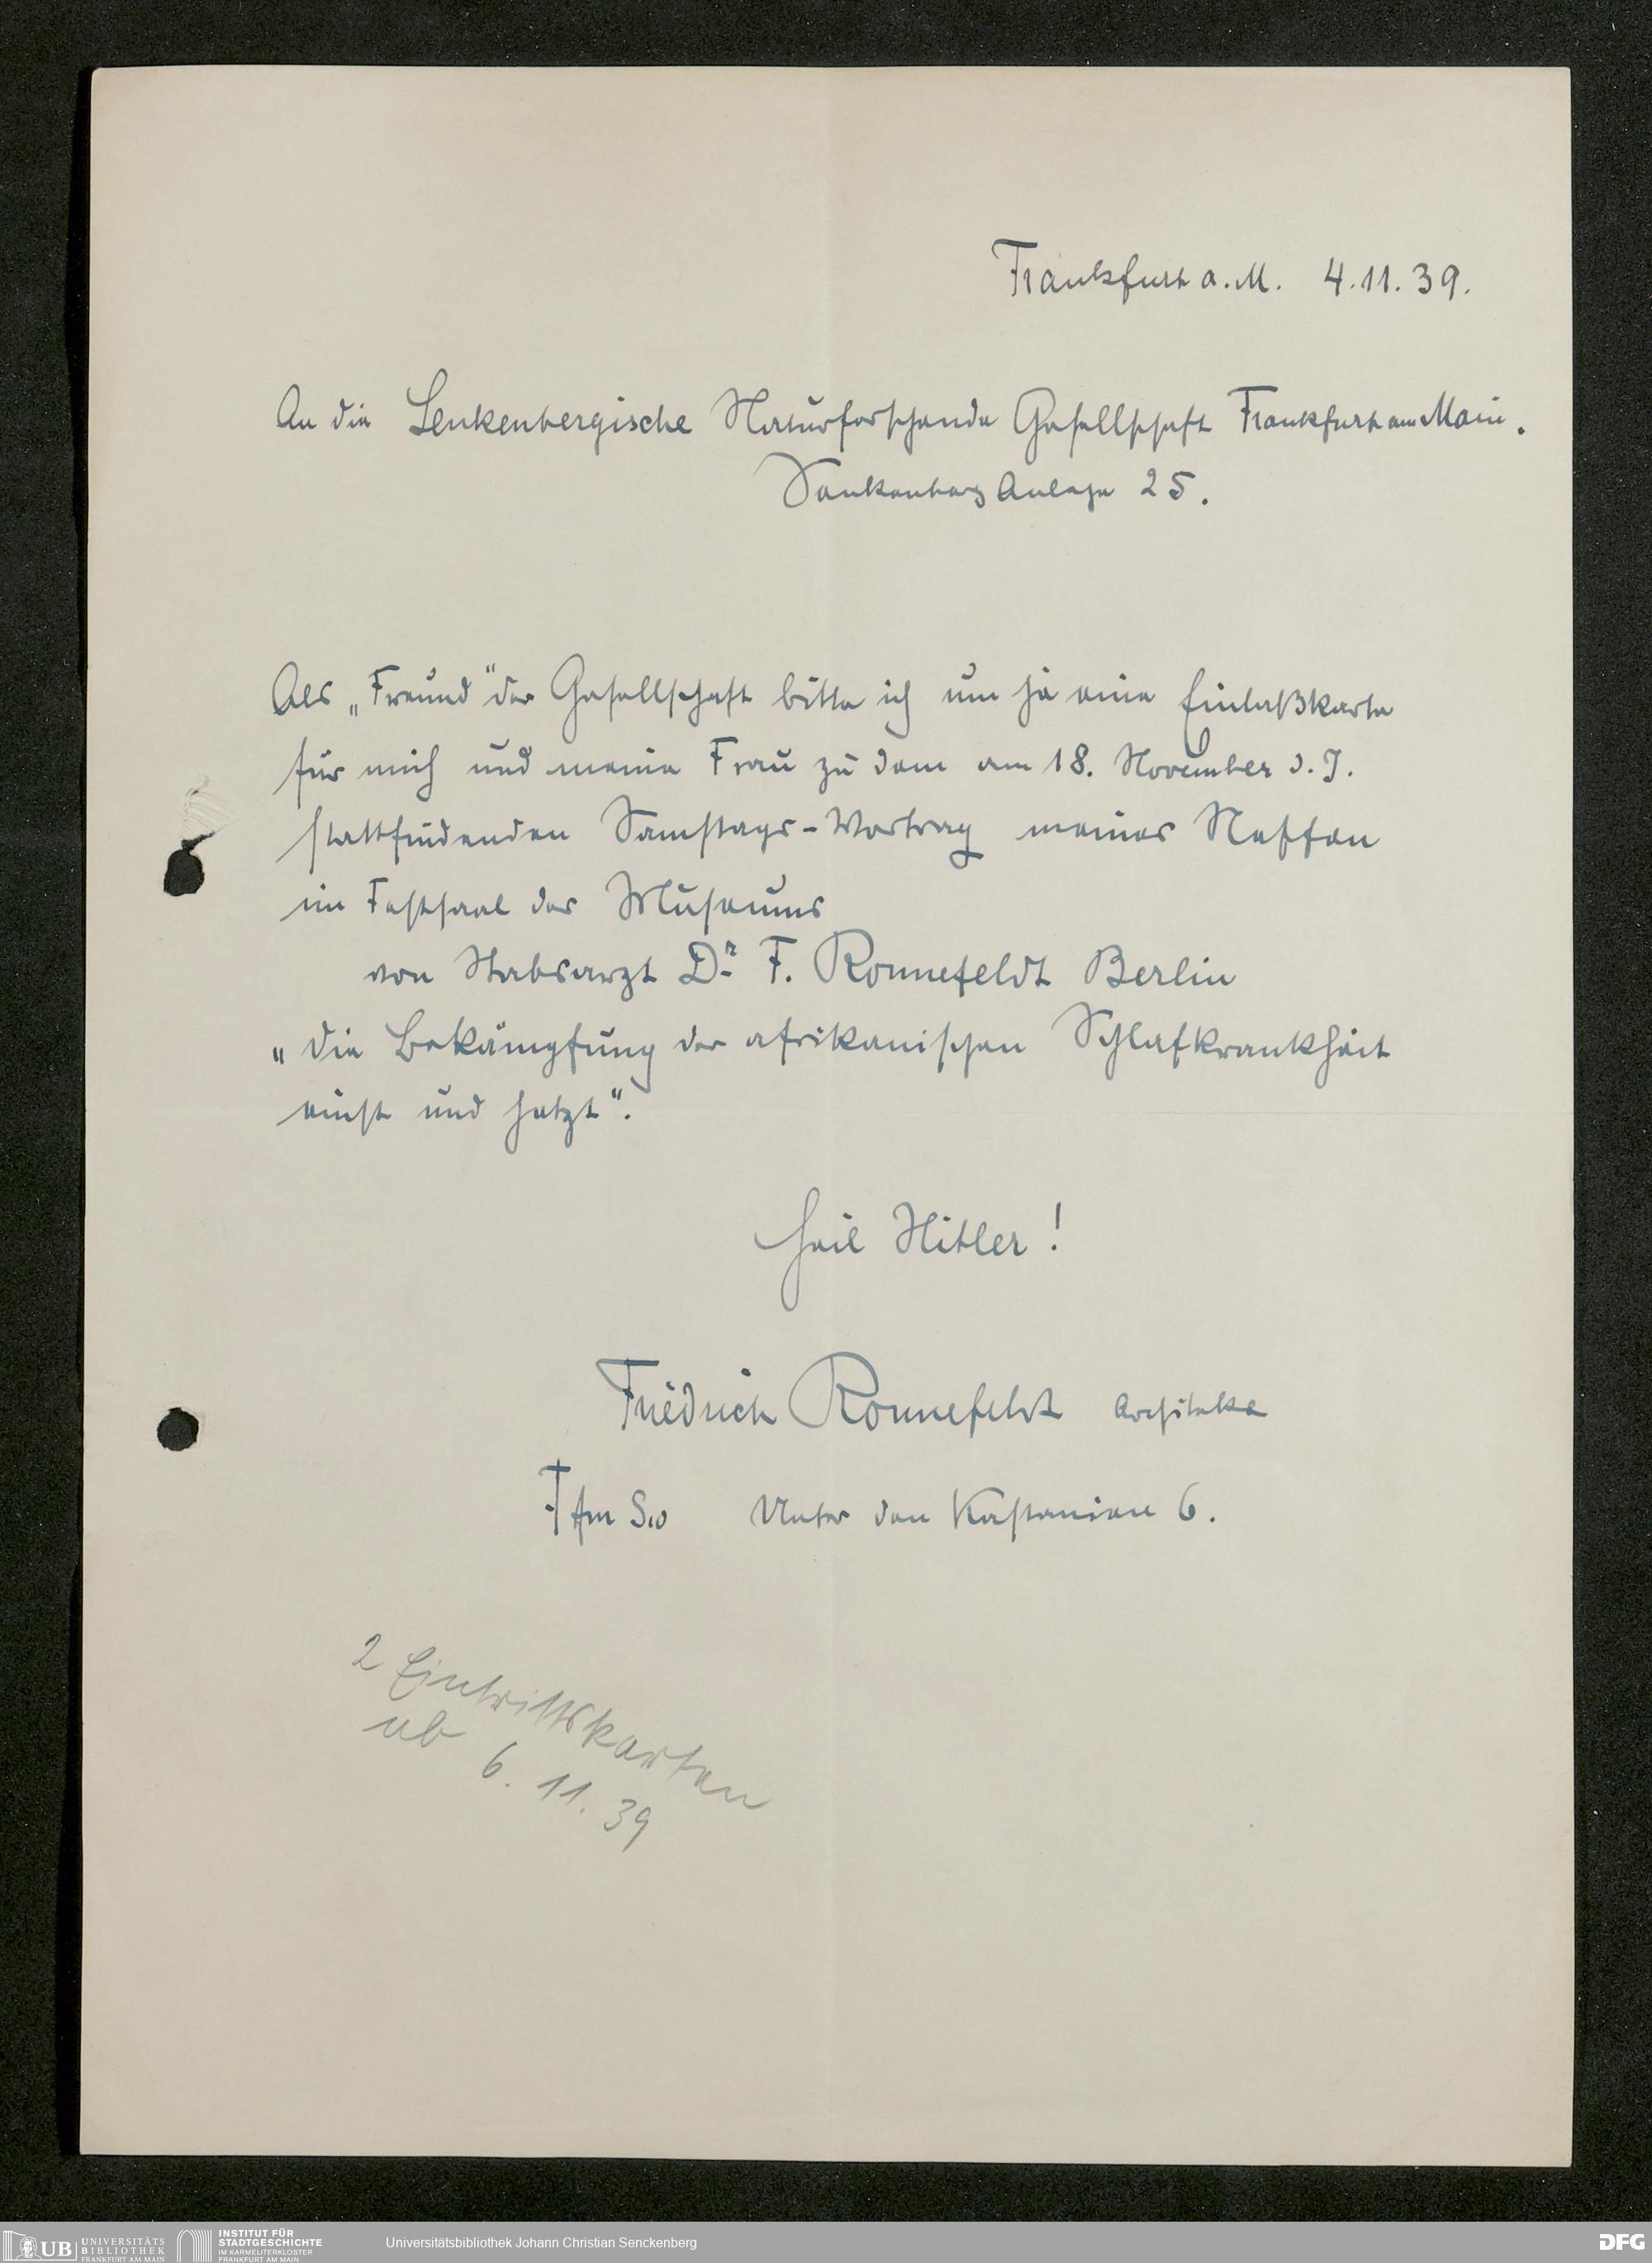 Frankfurt a. M. 4.11.39.
An die Senkenbergische Naturforschende Gesellschaft Frankfurt am Main.
Senkenberg Anlage 25.
Als „Freund“ der Gesellschaft bitte ich um je eine Einlaßkarte
für mich und meine Frau zu dem am 18. November d. J.
stattfindenden Samstags-Vortrag meines Neffen
im Festsaal des Museums
von Stabsarzt Dr. F. Ronnefeldt Berlin
„die Bekämpfung der afrikanischen Schlafkrankheit
einst und jetzt“.
Heil Hitler!
Friedrich Ronnefeldt Architekt
Ffm S10 Unter den Kastanien 6.
2 Eintrittskarten
ab 6. 11. 39
UB UNIVERSITÄTS BIBLIOTHEK FRANKFURT AM MAIN
INSTITUT FÜR STADTGESCHICHTE IM KARMELITERKLOSTER FRANKFURT AM MAIN
Universitätsbibliothek Johann Christian Senckenberg
DFG